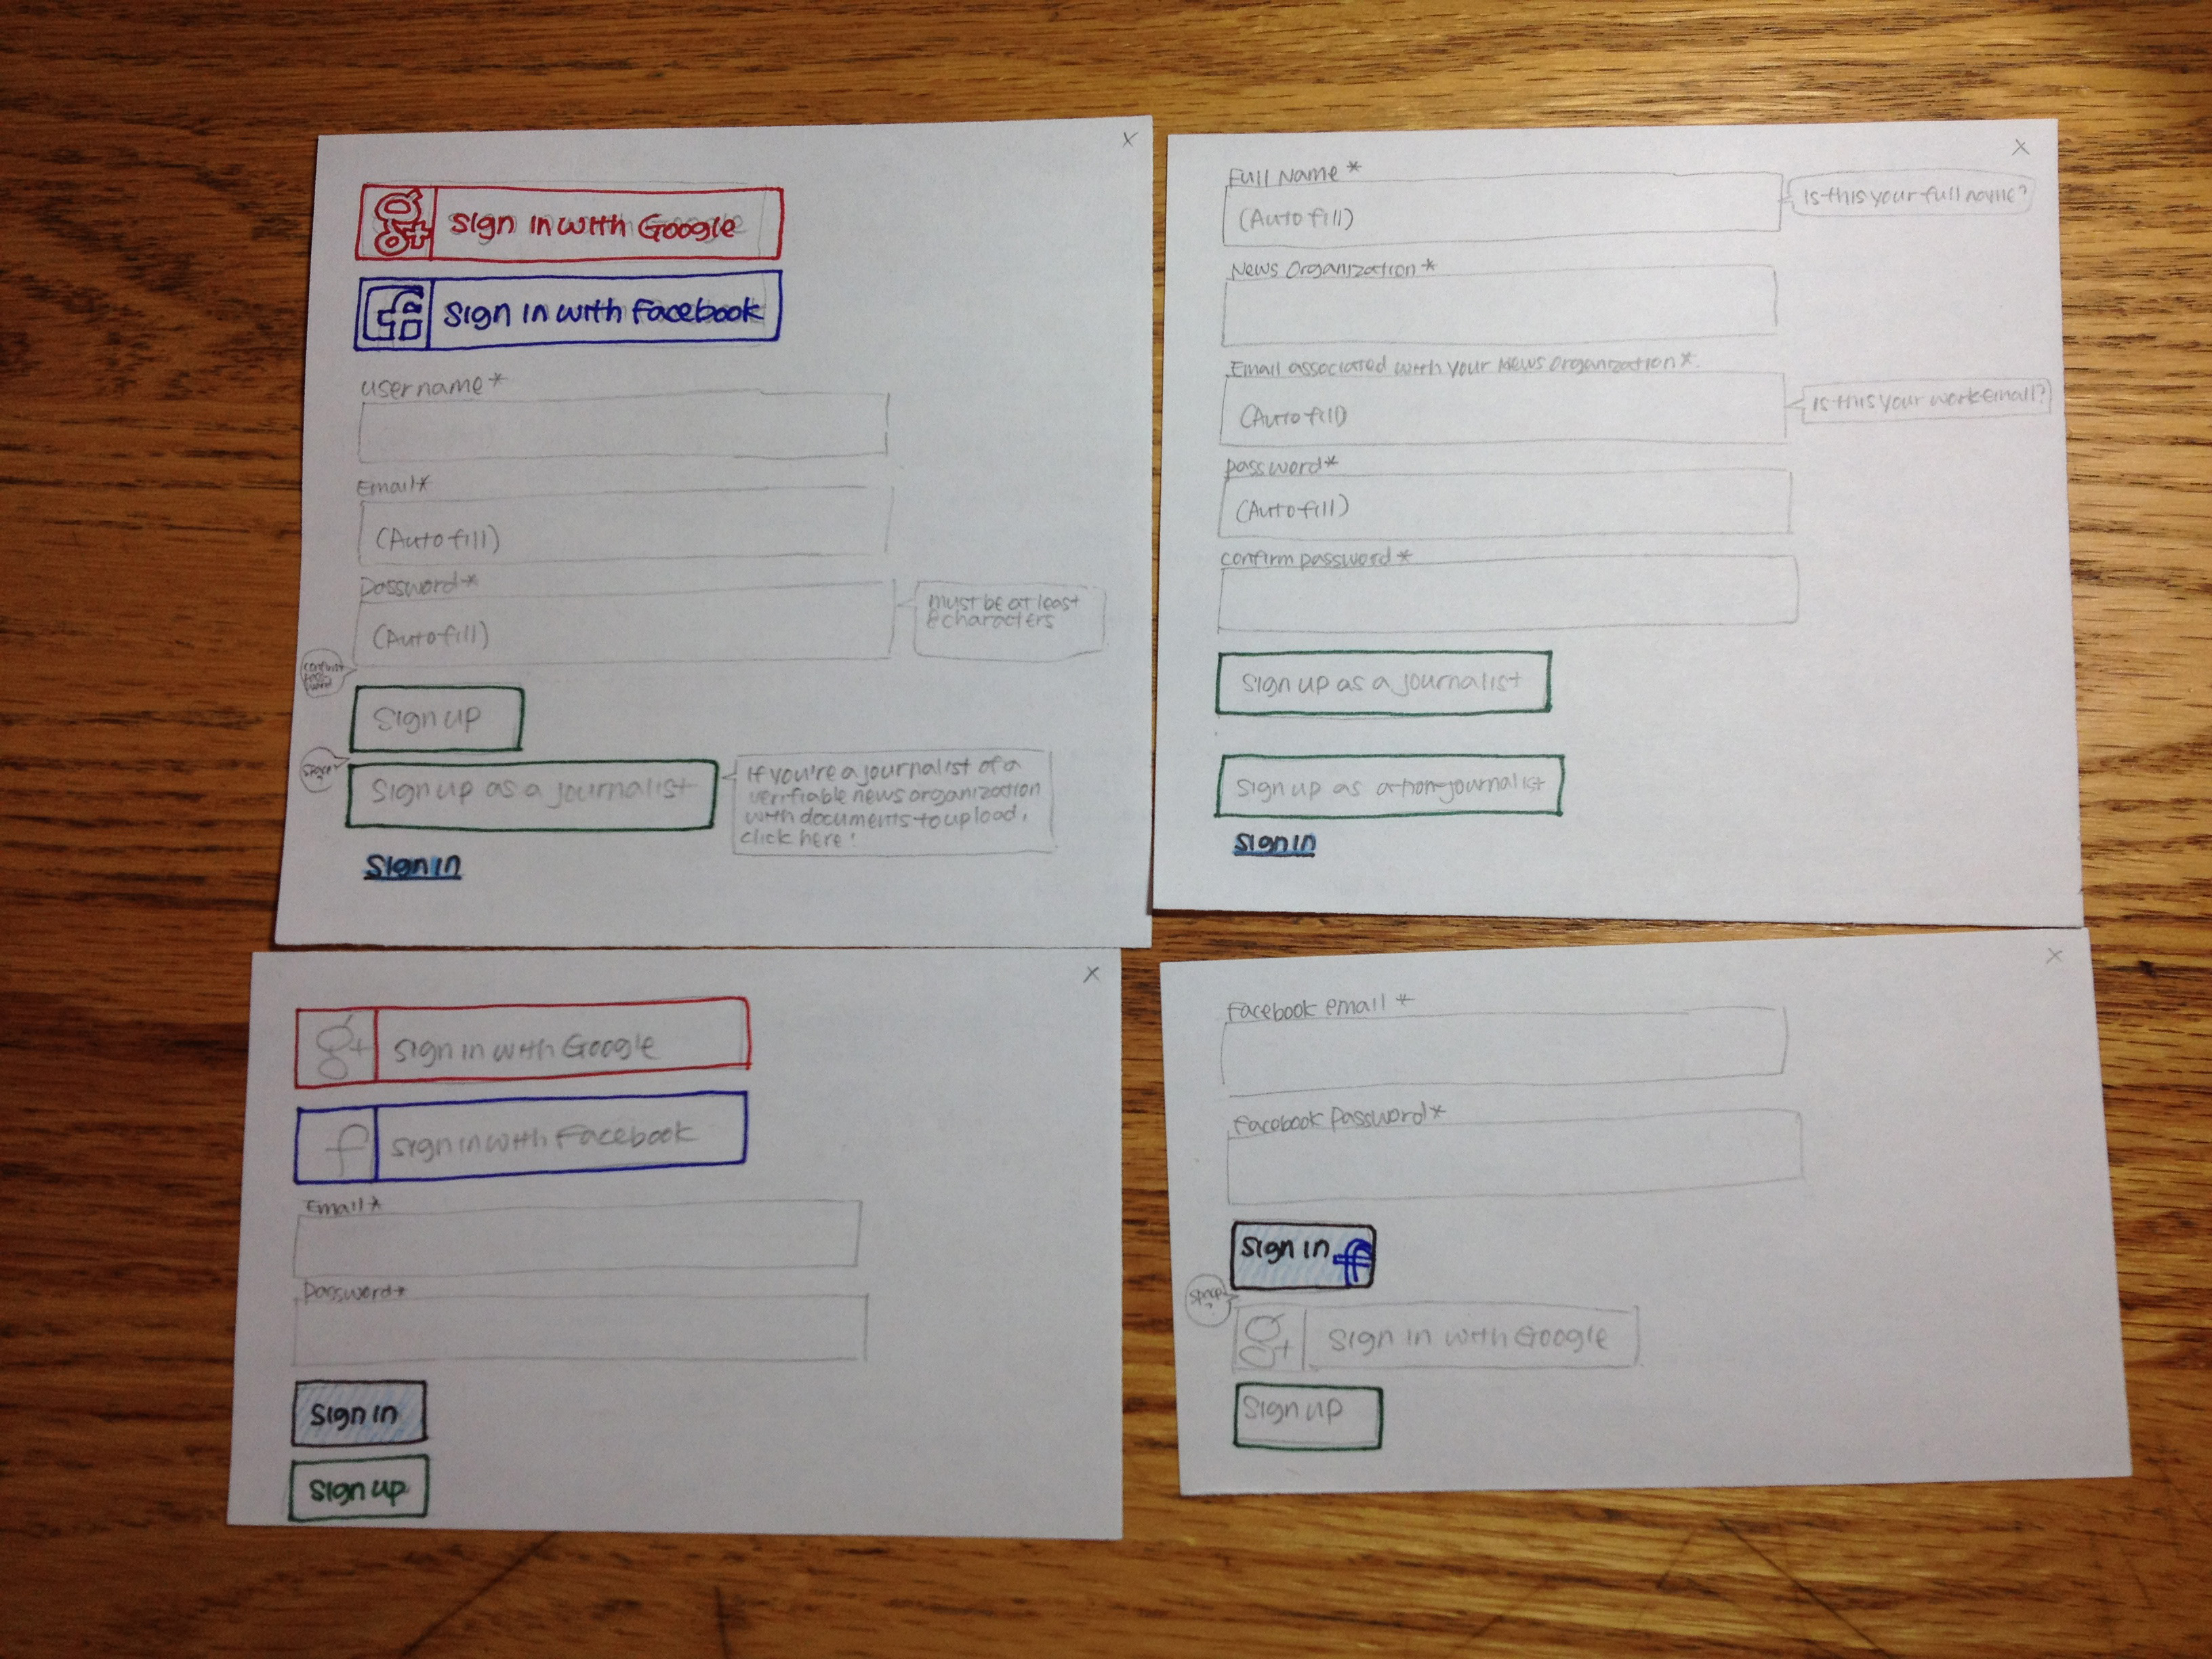 x
g+ Sign in with Google
f Sign in with Facebook
username*
Email*
(Autofill)
Password*
(Autofill)
must be at least
8 characters
confirm
pass-
word
Sign up
space
?
Sign up as a journalist
If you're a journalist of a
verifiable news organization
with documents to upload,
click here!
Sign in
x
Full Name *
(Autofill)
Is this your full name?
News Organization *
Email associated with your News Organization*.
(Autofill)
Is this your work email?
password*
(Autofill)
confirm password*
Sign up as a journalist
Sign up as a non-journalist
Sign in
x
g+ Sign in with Google
f Sign in with Facebook
Email*
Password*
Sign in
Sign up
x
Facebook email *
Facebook Password*
Sign in f
space
?
g+ Sign in with Google
Sign up